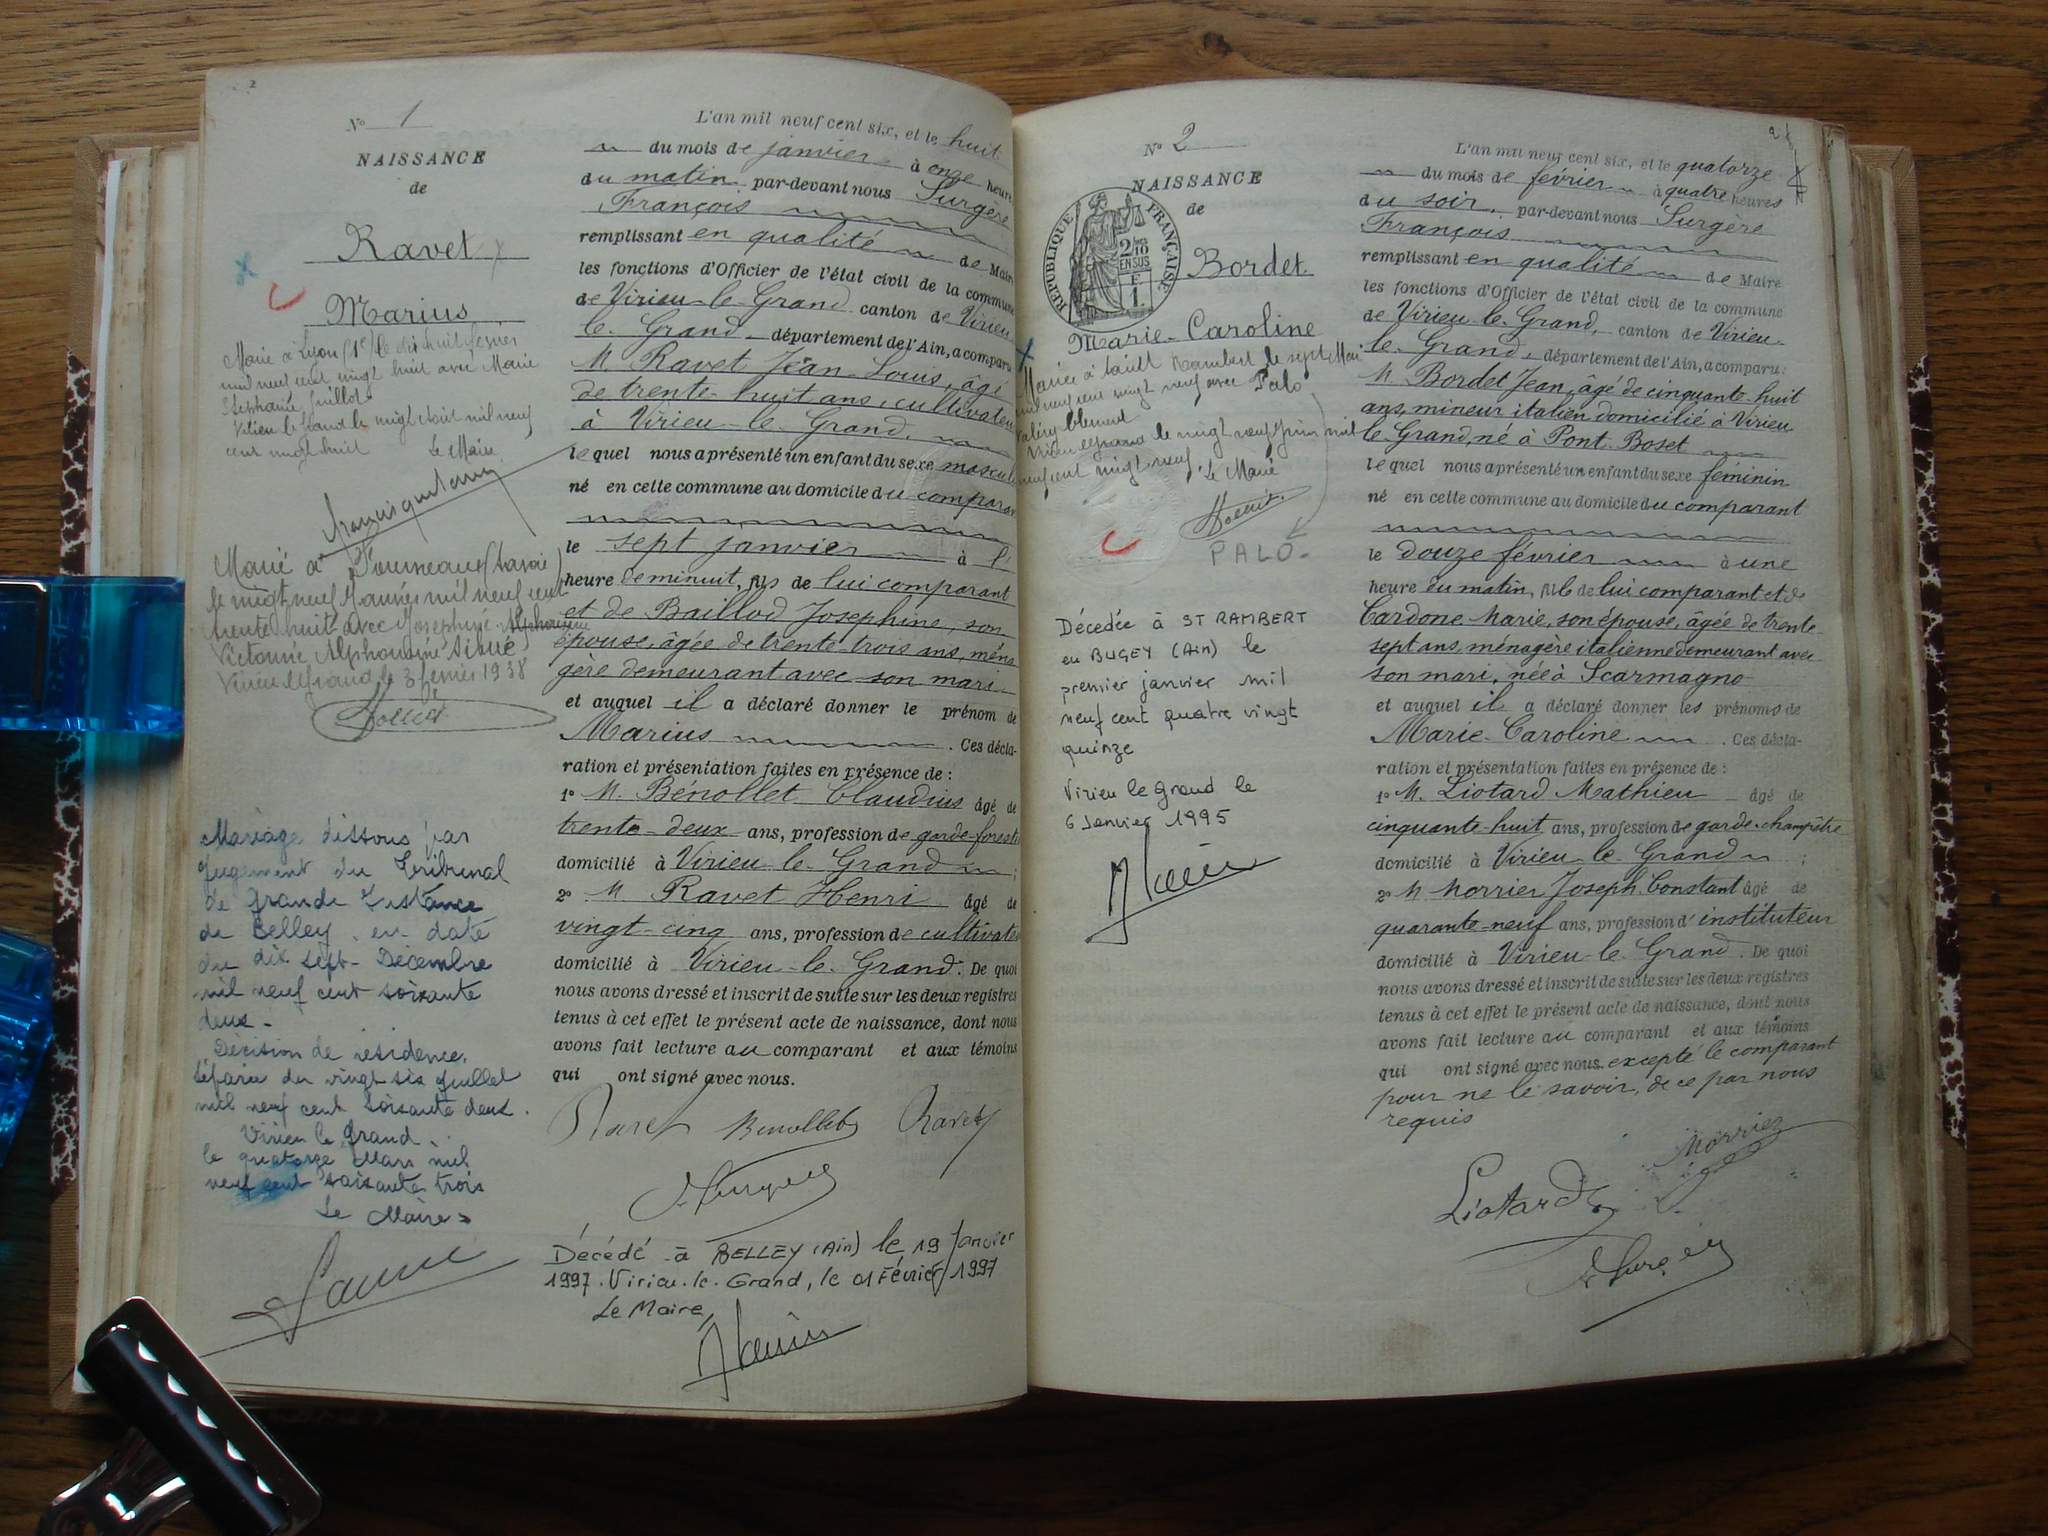 2
N° 1
NAISSANCE
de
Ravet
Marius
Marié à Lyon (1er) le dix huit février
mil neuf cent vingt huit avec Marie
Stéphanie Guillot
Virieu le Grand le vingt
cent vingt huit Le Maire
Marié à Fourneaux (Savoie)
le vingt neuf Janvier mil neuf cent
trente huit avec Joséphine Alphonsine
Victorine, Alphonsine
Virieu le Grand le 3 février 1938
Mariage dissous par
jugement du Tribunal
de Grande Instance
de Belley, en date
du dix sept Décembre
mil neuf cent soixante
deux -
Décision de résidence
séparée du vingt six Juillet
mil neuf cent soixante deux.
Virieu le Grand
le quatorze Mars mil
neuf cent soixante trois
Le Maire
L'an mil neuf cent six, et le huit
du mois de janvier à onze heures
du matin par-devant nous Surgère
François
remplissant en qualité de Maire
les fonctions d'Officier de l'état civil de la commune
de Virieu-le-Grand canton de Virieu
le Grand département de l'Ain, a comparu
M. Ravet Jean-Louis, âgé
de trente-huit ans, cultivateur
à Virieu-le-Grand,
lequel nous a présenté un enfant du sexe mascul
né en cette commune au domicile du comparan
le sept janvier à l'
heure de minuit, fils de lui comparant
et de Baillod Josephine, son
épouse, âgée de trente-trois ans, ména
gère demeurant avec son mari
et auquel il a déclaré donner le prénom de
Marius . Ces décla-
ration et présentation faites en présence de :
1° M. Bénollet Claudius âgé de
trente-deux ans, profession de garde-foresti
domicilié à Virieu-le-Grand ;
2° M Ravet Henri âgé de
vingt-cinq ans, profession de cultivate
domicilié à Virieu-le-Grand. De quoi
nous avons dressé et inscrit de suite sur les deux registres
tenus à cet effet le présent acte de naissance, dont nous
avons fait lecture au comparant et aux témoins
qui ont signé avec nous.
Ravet Benollet Ravet
Décédé à BELLEY (Ain) le 19 Janvier
1997. Virieu-le-Grand, le 01 Février 1997
Le Maire,
2
N° 2
NAISSANCE
de
REPUBLIQUE FRANÇAISE
2/10
EN SUS
F
1.
Bordet
Marie-Caroline
Mariée à Saint Rambert le sept Mai
mil neuf cent vingt neuf avec Palo
Valéry Clément
Virieu le grand le vingt neuf Juin mil
neuf cent vingt neuf. Le Maire
PALO.
Décédée à ST RAMBERT
en BUGEY (Ain) le
premier janvier mil
neuf cent quatre vingt
quinze
Virieu le Grand le
6 Janvier 1995
L'an mil neuf cent six, et le quatorze
du mois de février à quatre heures
du soir, par-devant nous Surgère
François
remplissant en qualité de Maire
les fonctions d'Officier de l'état civil de la commune
de Virieu-le-Grand, canton de Virieu-
le-Grand, département de l'Ain, a comparu :
M. Bordet Jean, âgé de cinquante-huit
ans, mineur italien domicilié à Virieu
le Grand, né à Pont Boset
lequel nous a présenté un enfant du sexe féminin
né en cette commune au domicile du comparant
le douze février à une
heure du matin, fille de lui comparant et de
Cardone Marie, son épouse, âgée de trente-
sept ans, ménagère italienne demeurant avec
son mari, née à Scarmagno
et auquel il a déclaré donner les prénoms de
Marie-Caroline . Ces décla-
ration et présentation faites en présence de :
1° M. Liotard Mathieu âgé de
cinquante-huit ans, profession de garde-champêtre
domicilié à Virieu-le-Grand ;
2° M Morrier Joseph Constant âgé de
quarante-neuf ans, profession d'instituteur
domicilié à Virieu-le-Grand. De quoi
nous avons dressé et inscrit de suite sur les deux registres
tenus à cet effet le présent acte de naissance, dont nous
avons fait lecture au comparant et aux témoins
qui ont signé avec nous excepté le comparant
pour ne le savoir, de ce par nous
requis
Morrier
Liotard